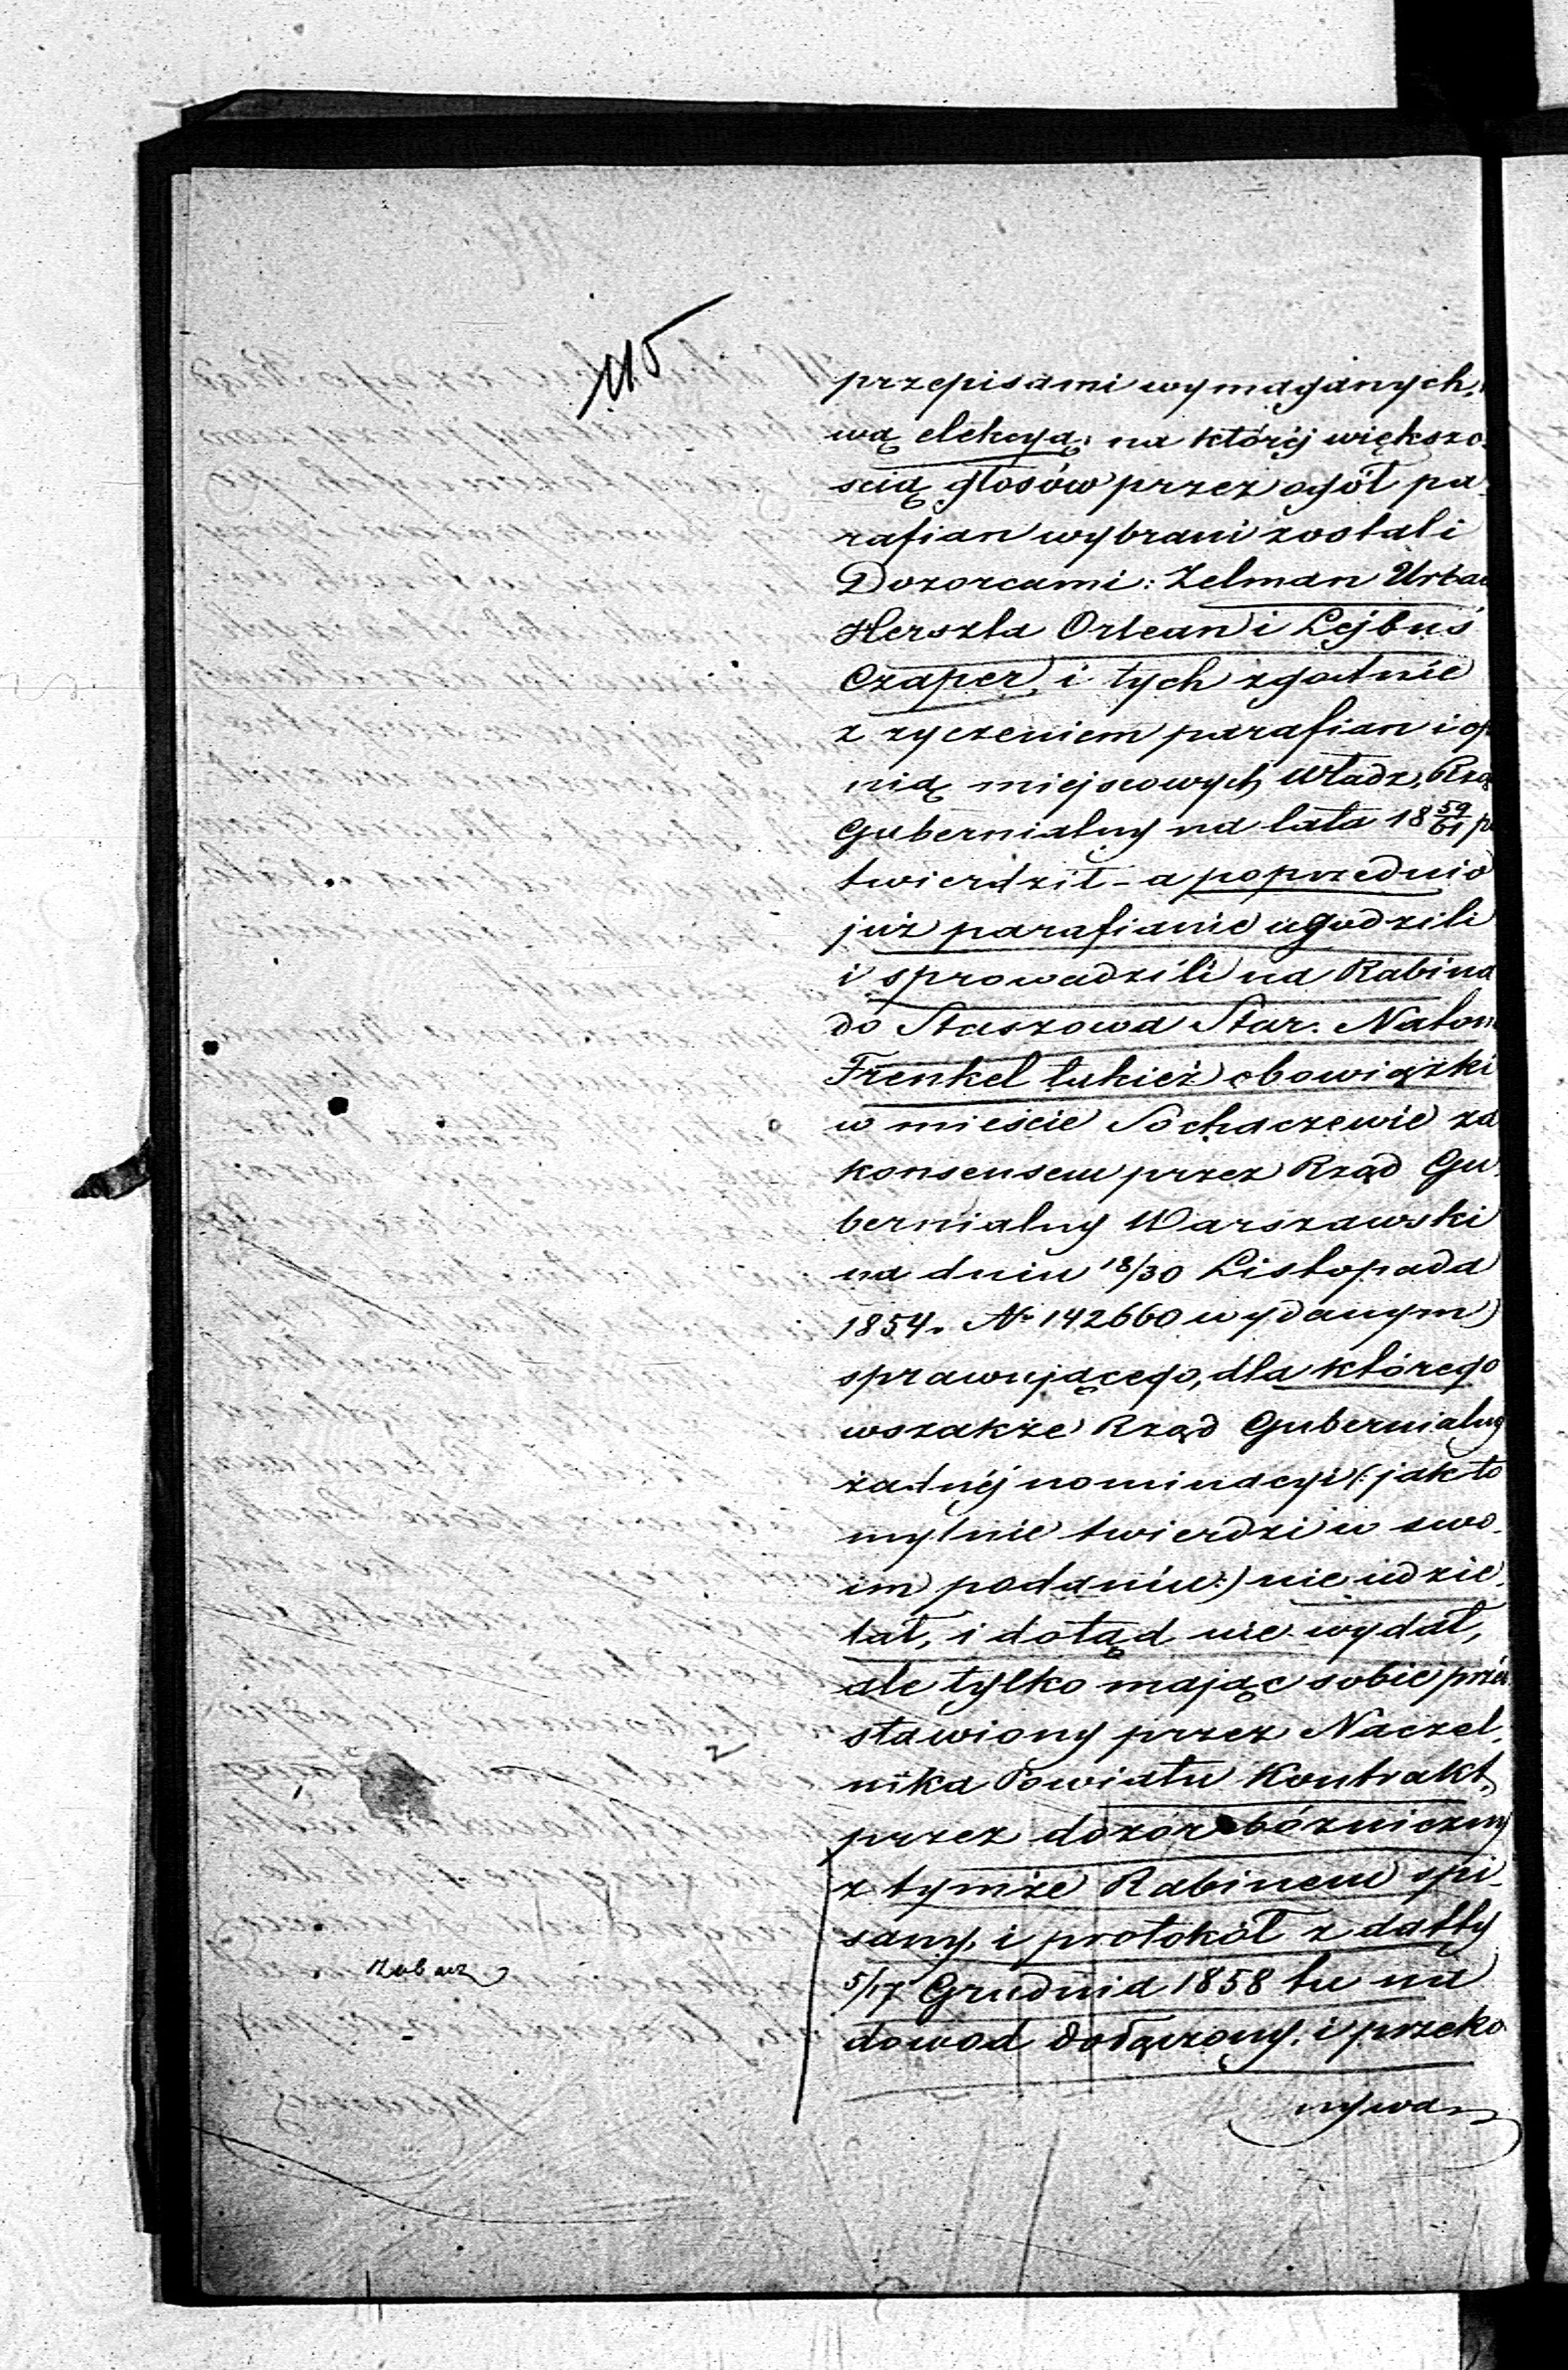 115
przepisami wymaganych,
wą elekcyą, na któréj większo-
ścią głosów przez ogół pa-
rafian wybrani zostali
Dozorcami: Zelman Urba
Herszla Orlean i Lejbuś
Czaper, i tych zgodnie
z życzeniem parafian i op
nią miejscowych Władz, Rzą
Gubernialny na lata 18 59/61 p
twierdził - a poprzednio
już parafianie ugodzili
i sprowadzili na Rabina
do Staszowa Star. Natan
Frenkel tukież obowiązki
w mieście Sochaczewie za
konsensem przez Rząd Gu-
bernialny Warszawski
na dniu 18/30 Listopada
1854 r. Nr 142660 wydanym
sprawującego, dla którego
wszakże Rząd Gubernialny
żadnéj nominacyi (: jak to
mylnie twierdzi w swo-
im podaniu :) nie udzie-
lał, i dotąd nie wydał,
ale tylko mając sobie prze
stawiony przez Naczel-
nika Powiatu Kontrakt,
przez dozór bóżniczny
z tymże Rabinem spi-
sany, i protokół z datty
5/17 Grudnia 1858 tu na
dowod dołączony, i przeko
nywa